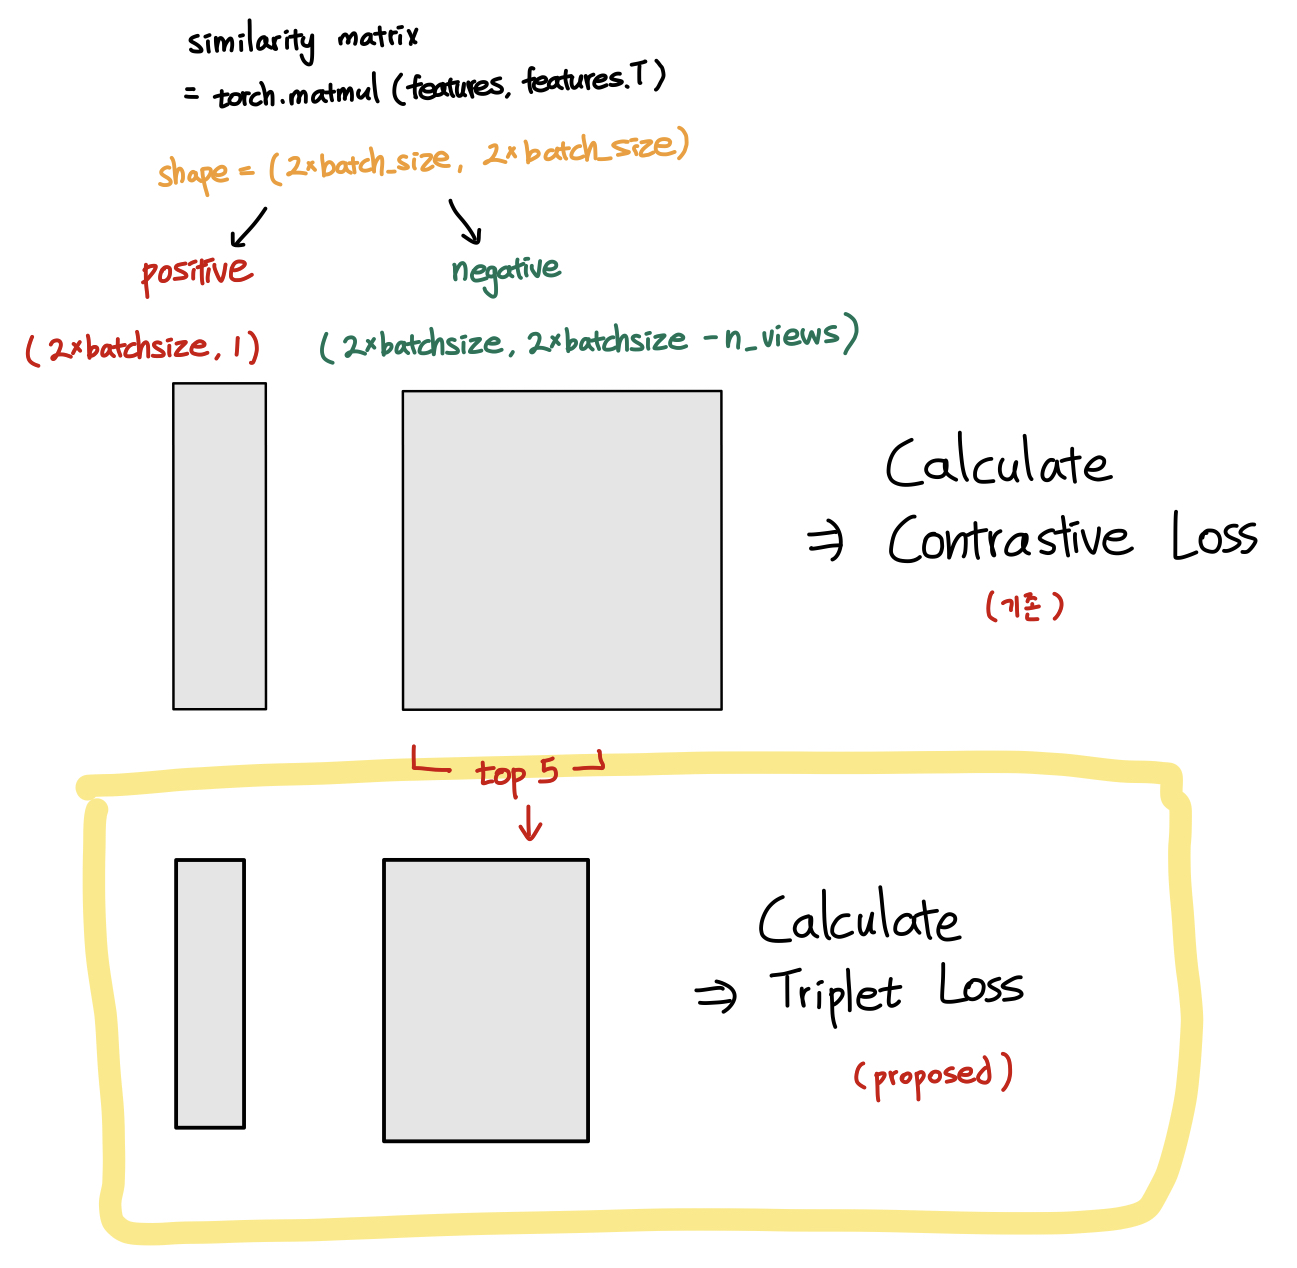 similarity matrix
= torch.matmul (features, features.T)
shape = (2×batch_size, 2×batch_size)
positive
negative
(2×batchsize, 1)
(2×batchsize, 2×batchsize - n_views)
Calculate
⇒ Contrastive Loss
(기존)
top 5
Calculate
⇒ Triplet Loss
(proposed)